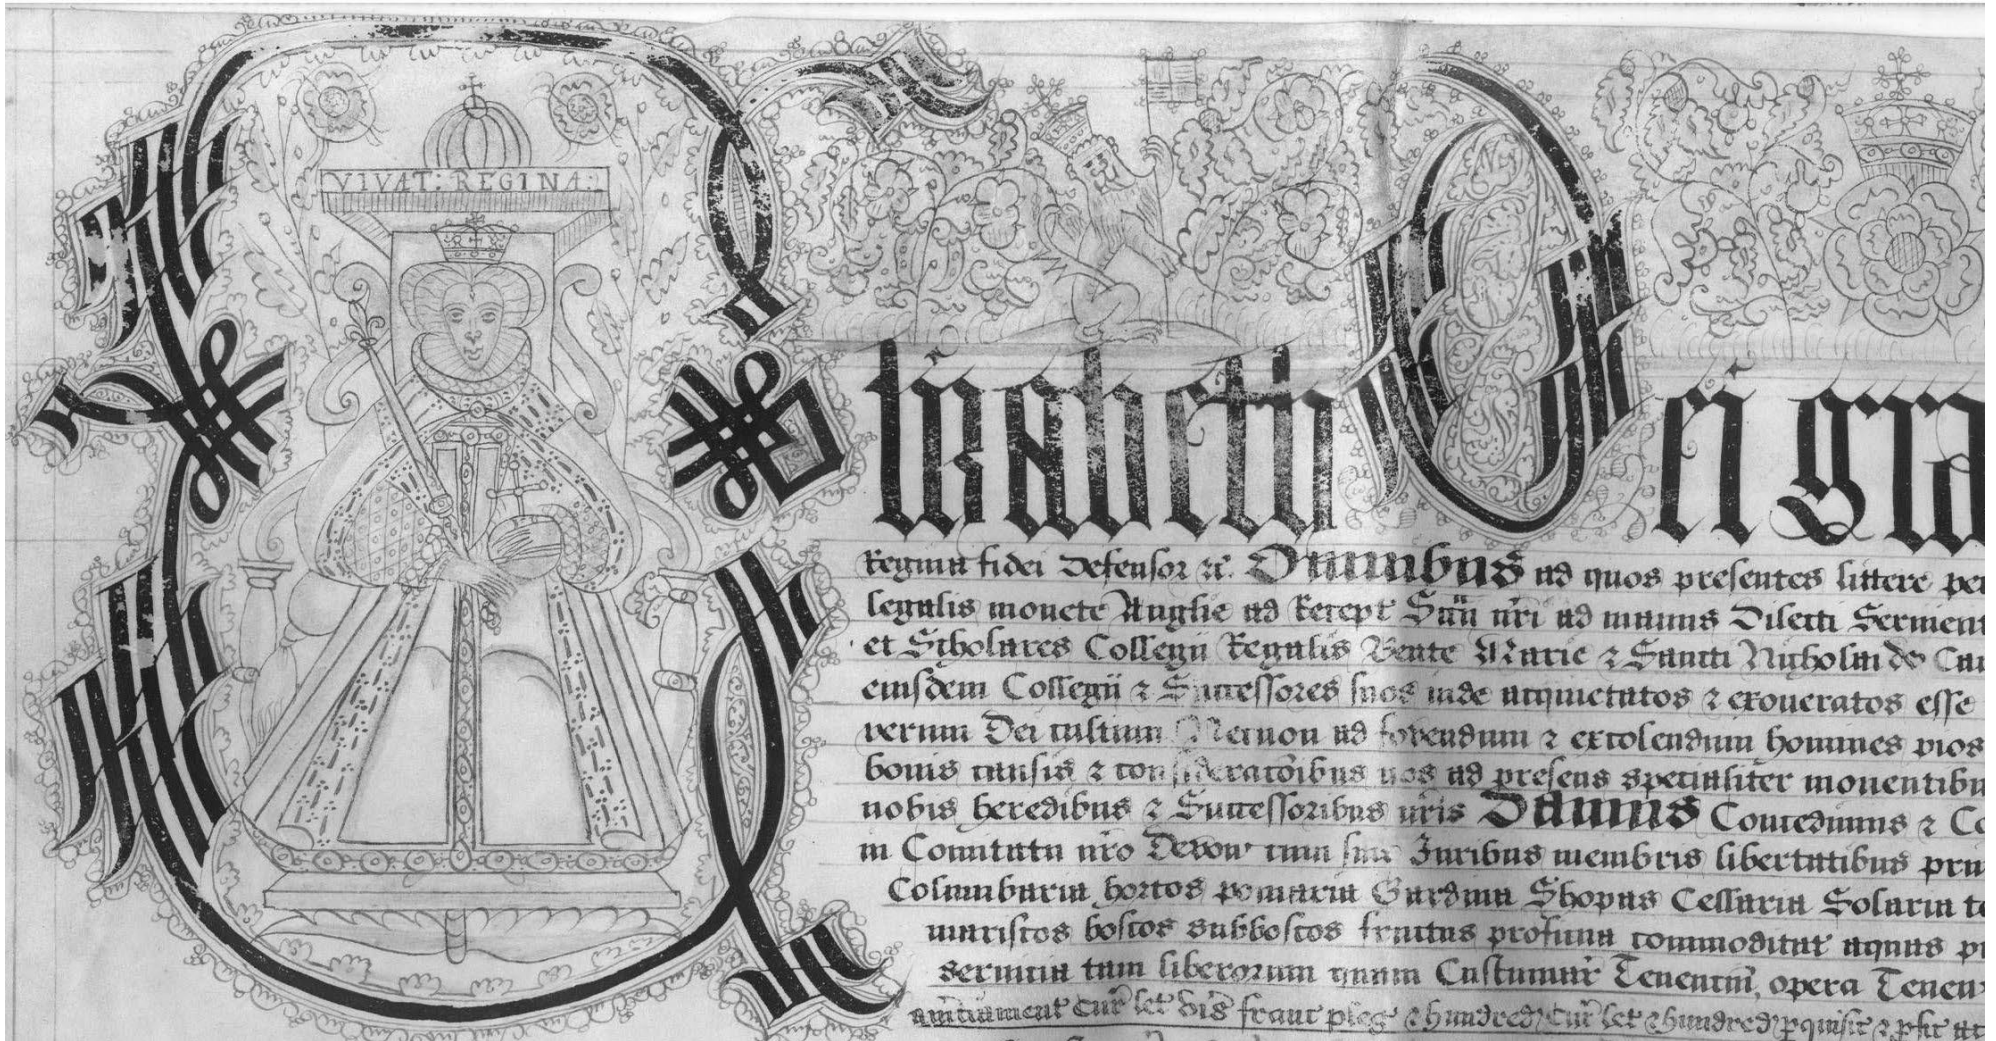 VIVAT: REGINA:
Elizabeth Dei gra
Regina fidei Defensor &c. Omnibus ad quos presentes littere per
legalis monete Anglie ad Recept Scii nri ad manus Dilecti Servient
et Scholares Collegii Regalis Beate Marie & Sancti Nicholai de Can
eiusdem Collegii & Successores suos inde acquietatos & exoneratos esse
verum Dei cultum Necnon ad fovendum & extolendum homines pios
bonis causis & consideracoibus nos ad presens specialiter moventibu
nobis heredibus & Successoribus nris Damus Concedimus & Co
in Comitatu nro Devon cum suis Juribus membris libertatibus
Columbaria hortos pomaria Gardina Shopas Cellaria Solaria
mariscos boscos subboscos fructus proficua commoditat aquas
servicia tam liberorum quam Custumar Tenencin, opera Tenen
cur let vis franc pleg & hundred cur let & hundred pquisit & pfic